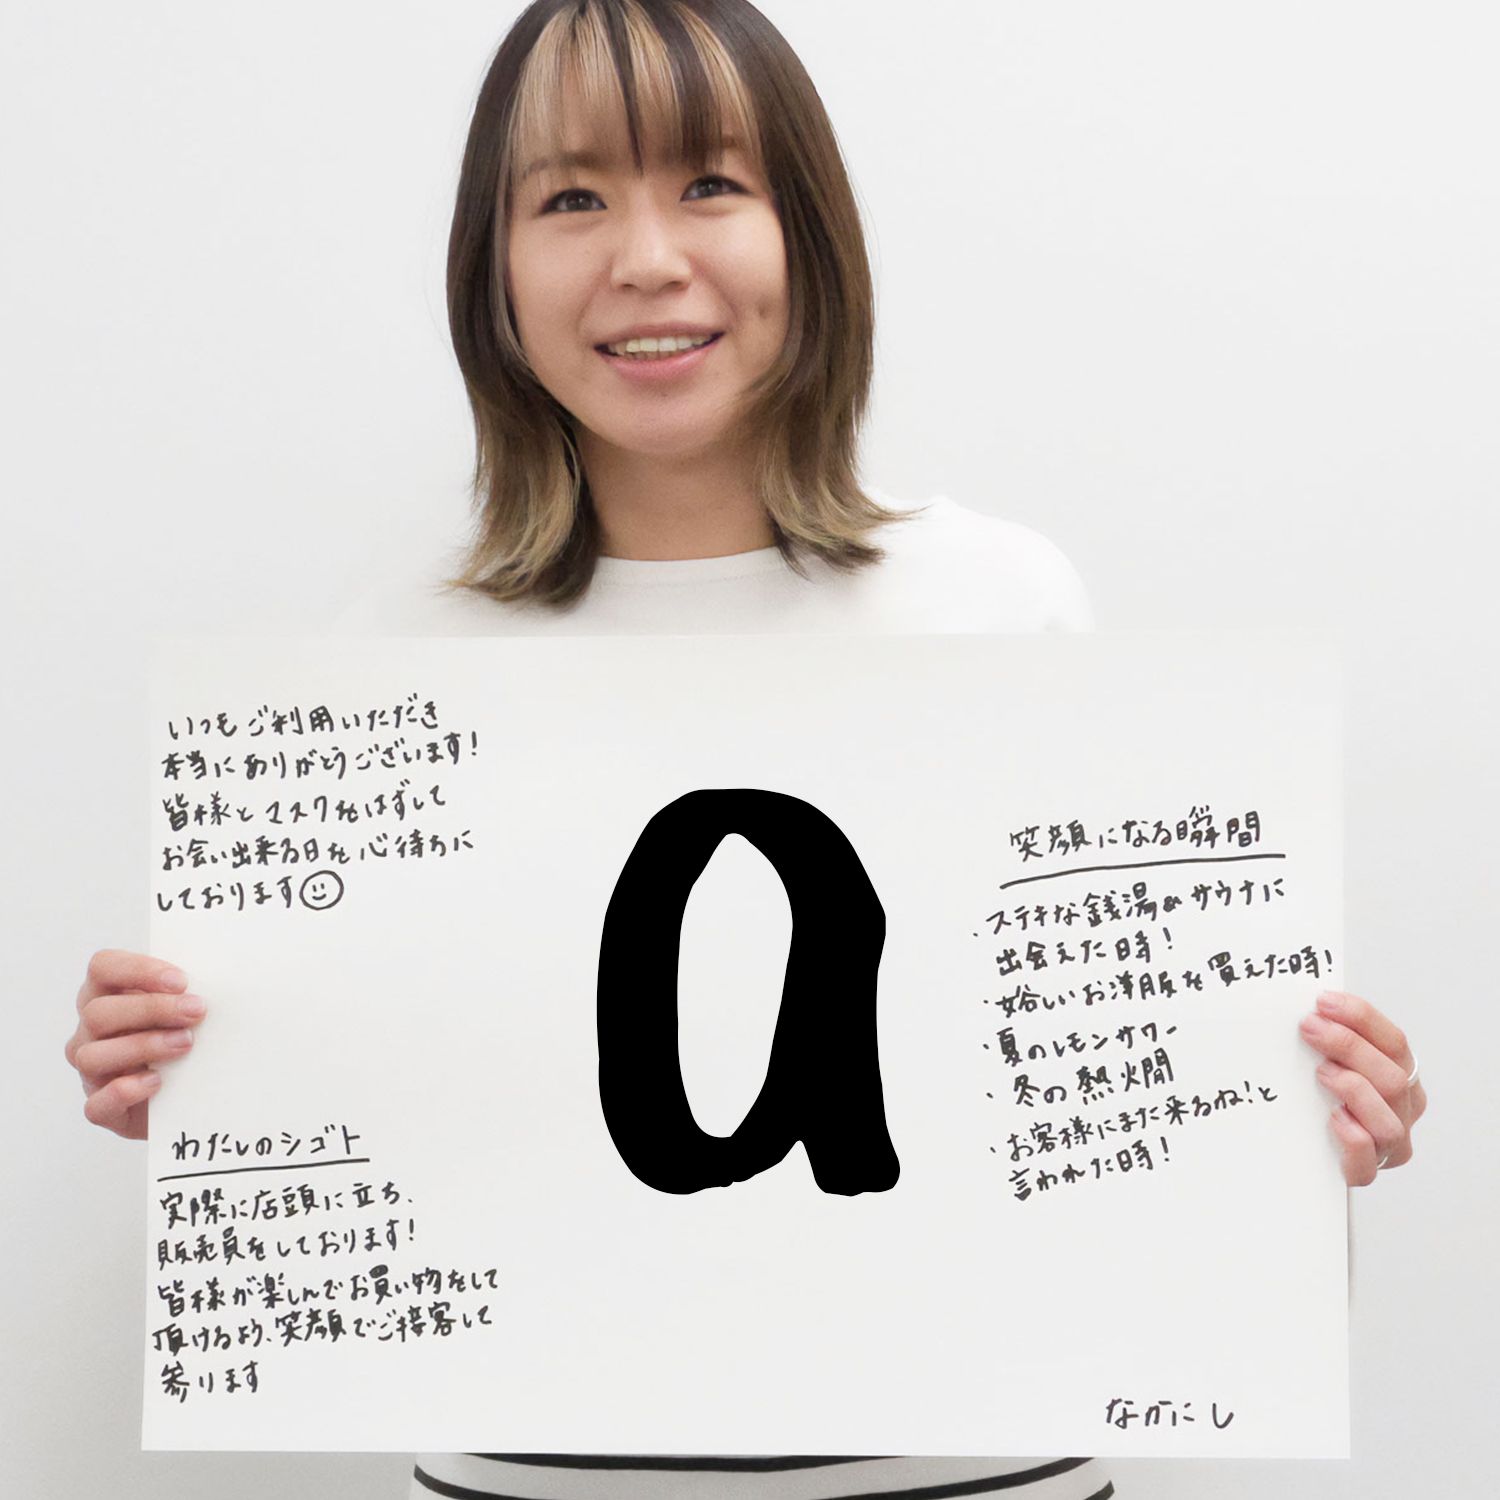 いつもご利用いただき
本当にありがとうございます!
皆様とマスクをはずして
お会い出来る日を心待ちに
しております☺
a
笑顔になる瞬間
・ステキな銭湯&サウナに
出会えた時!
・嬉しいお洋服を買えた時!
・夏のレモンサワー
・冬の熱燗
・お客様にまた来るね!と
言われた時!
わたしのシゴト
実際に店頭に立ち、
販売員をしております!
皆様が楽しんでお買い物をして
頂けるよう、笑顔でご接客して
参ります
なかにし